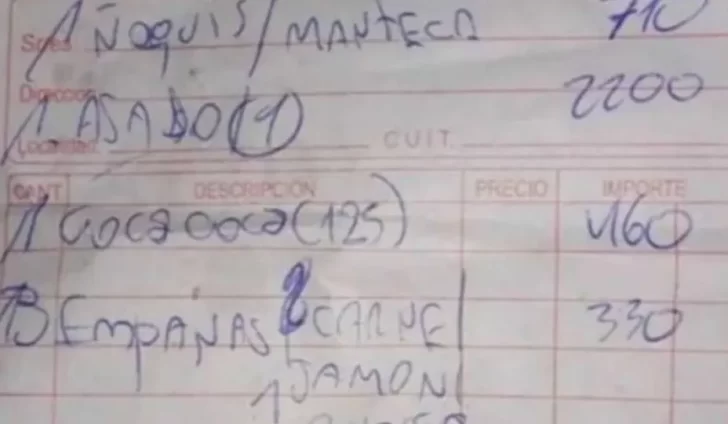 1 ÑOQUIS/MANTECA 710
Dirección
1 ASADO (1) 2200
Localidad CUIT
CANT DESCRIPCION PRECIO IMPORTE
1 COCA COCA (125) 460
3 EMPAÑAS 2 CARNE 330
1 JAMON